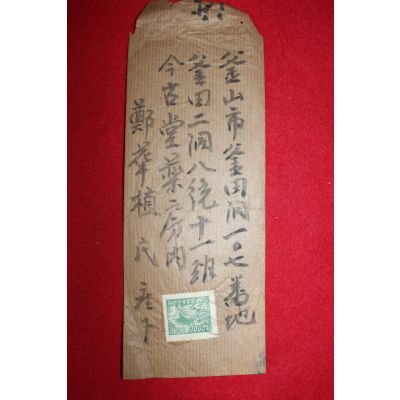 釜山市釜田洞一〇七番地
釜田二洞八統十一班
今古堂藥房內
鄭華植 氏 座下